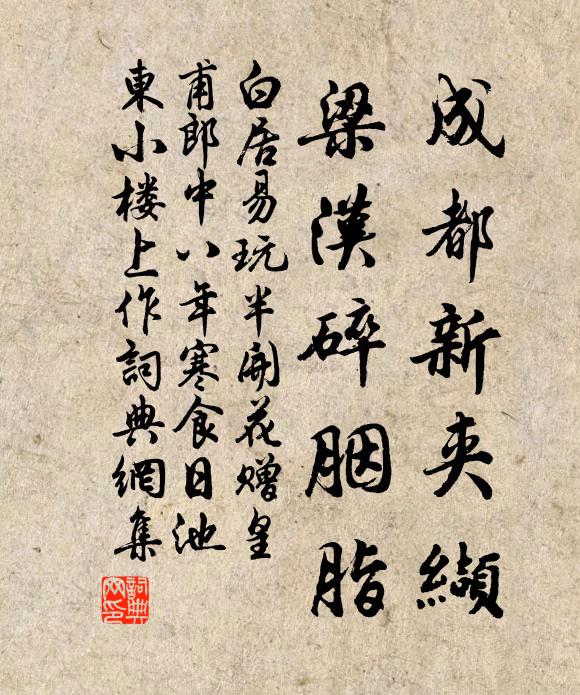 成都新夹纈
梁漢碎胭脂
白居易玩半開花赠皇
甫郎中八年寒食日池
東小楼上作詞典網集
詞典